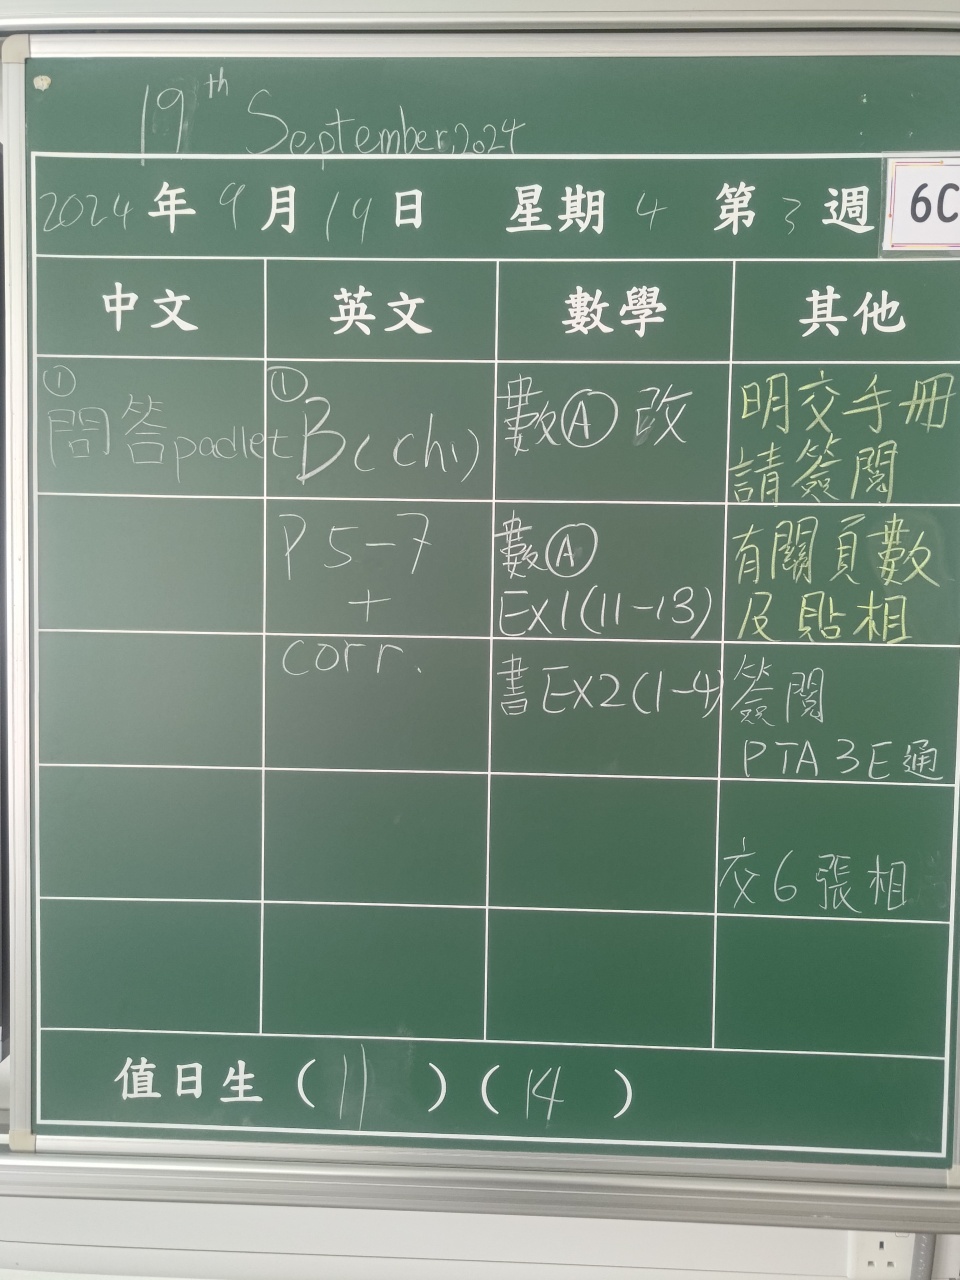 19th September, 2024
2024年9月19日 星期4 第3週 6C
中文 英文 數學 其他
① 問答padlet
① B(chi)
P5-7
+
corr.
數Ⓐ改
數Ⓐ
Ex1(11-13)
書Ex2(1-4)
明交手冊
請簽閱
有關頁數
及貼相
簽閱
PTA3E通
交6張相
值日生(11)(14)